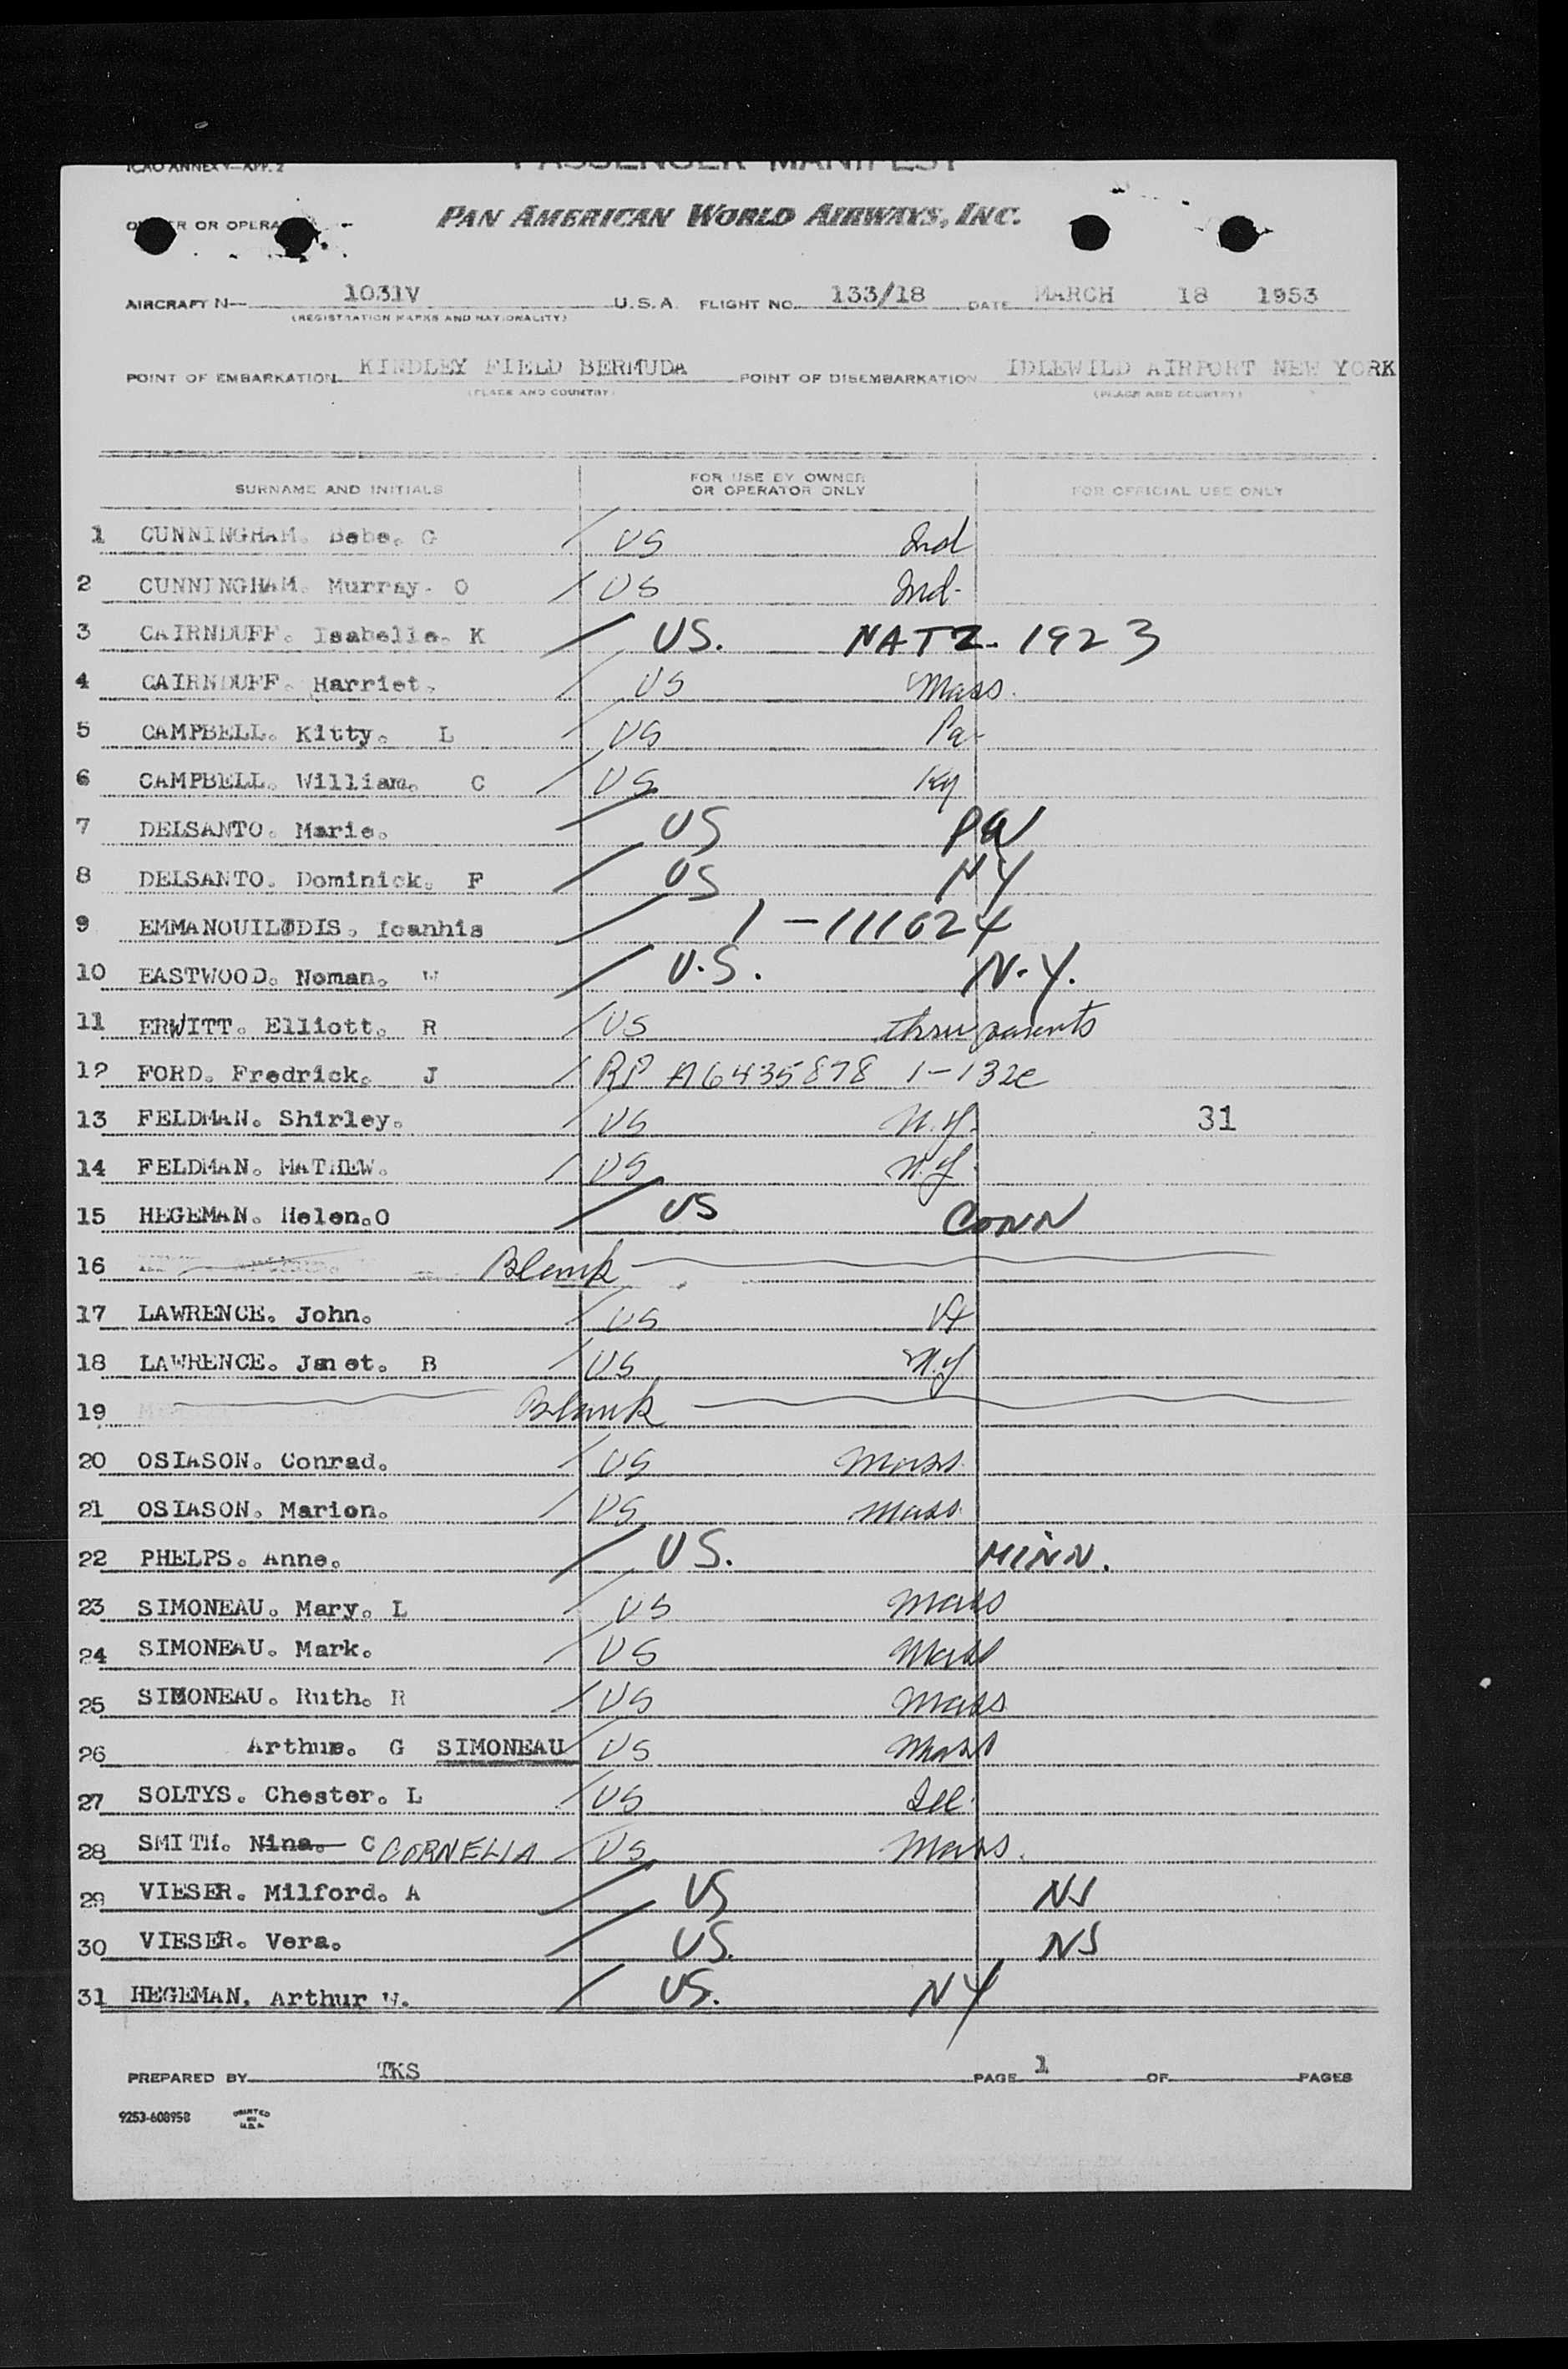 ICAO ANNEX 9—APP. 2
PASSENGER MANIFEST
OWNER OR OPERATOR PAN AMERICAN WORLD AIRWAYS, INC.
AIRCRAFT N— 1031V U.S.A. FLIGHT NO. 133/18 DATE MARCH 18 1953
(REGISTRATION MARKS AND NATIONALITY)
POINT OF EMBARKATION KINDLEY FIELD BERMUDA POINT OF DISEMBARKATION IDLEWILD AIRPORT NEW YORK
(PLACE AND COUNTRY) (PLACE AND COUNTRY)
SURNAME AND INITIALS FOR USE BY OWNER OR OPERATOR ONLY FOR OFFICIAL USE ONLY
1 CUNNINGHAM. Bebe. G / US Ind
2 CUNNINGHAM. Murray. O / US Ind.
3 CAIRNDUFF. Isabelle. K / US. NATZ. 1923
4 CAIRNDUFF. Harriet. / US Mass.
5 CAMPBELL. Kitty. L / US Pa.
6 CAMPBELL. William. C / US Ky
7 DELSANTO. Marie. / US Pa
8 DELSANTO. Dominick. F / US NY
9 EMMANOUILIDIS. Ioanhis / 1-111624
10 EASTWOOD. Noman. W / U.S. N.Y.
11 ERWITT. Elliott. R / US thru parents
12 FORD. Fredrick. J / RP A6435878 1-132e
13 FELDMAN. Shirley. / US N.Y. 31
14 FELDMAN. MATHEW. / US N.Y.
15 HEGEMAN. Helen.O / US CONN
16 Blank
17 LAWRENCE. John. / US Vt
18 LAWRENCE. Janet. B / US N.Y
19 Blank
20 OSIASON. Conrad. / US Mass.
21 OSIASON. Marion. / US Mass.
22 PHELPS. Anne. / US. MINN.
23 SIMONEAU. Mary. L / US Mass
24 SIMONEAU. Mark. / US Mass
25 SIMONEAU. Ruth. R / US Mass
26 Arthur. G SIMONEAU / US Mass
27 SOLTYS. Chester. L / US Ill.
28 SMITH. Nina. C CORNELIA / US Mass.
29 VIESER. Milford. A / US NJ
30 VIESER. Vera. / US. NJ
31 HEGEMAN. Arthur W. / US. NY
PREPARED BY TKS PAGE 1 OF PAGES
9253-608958 PRINTED IN U.S.A.